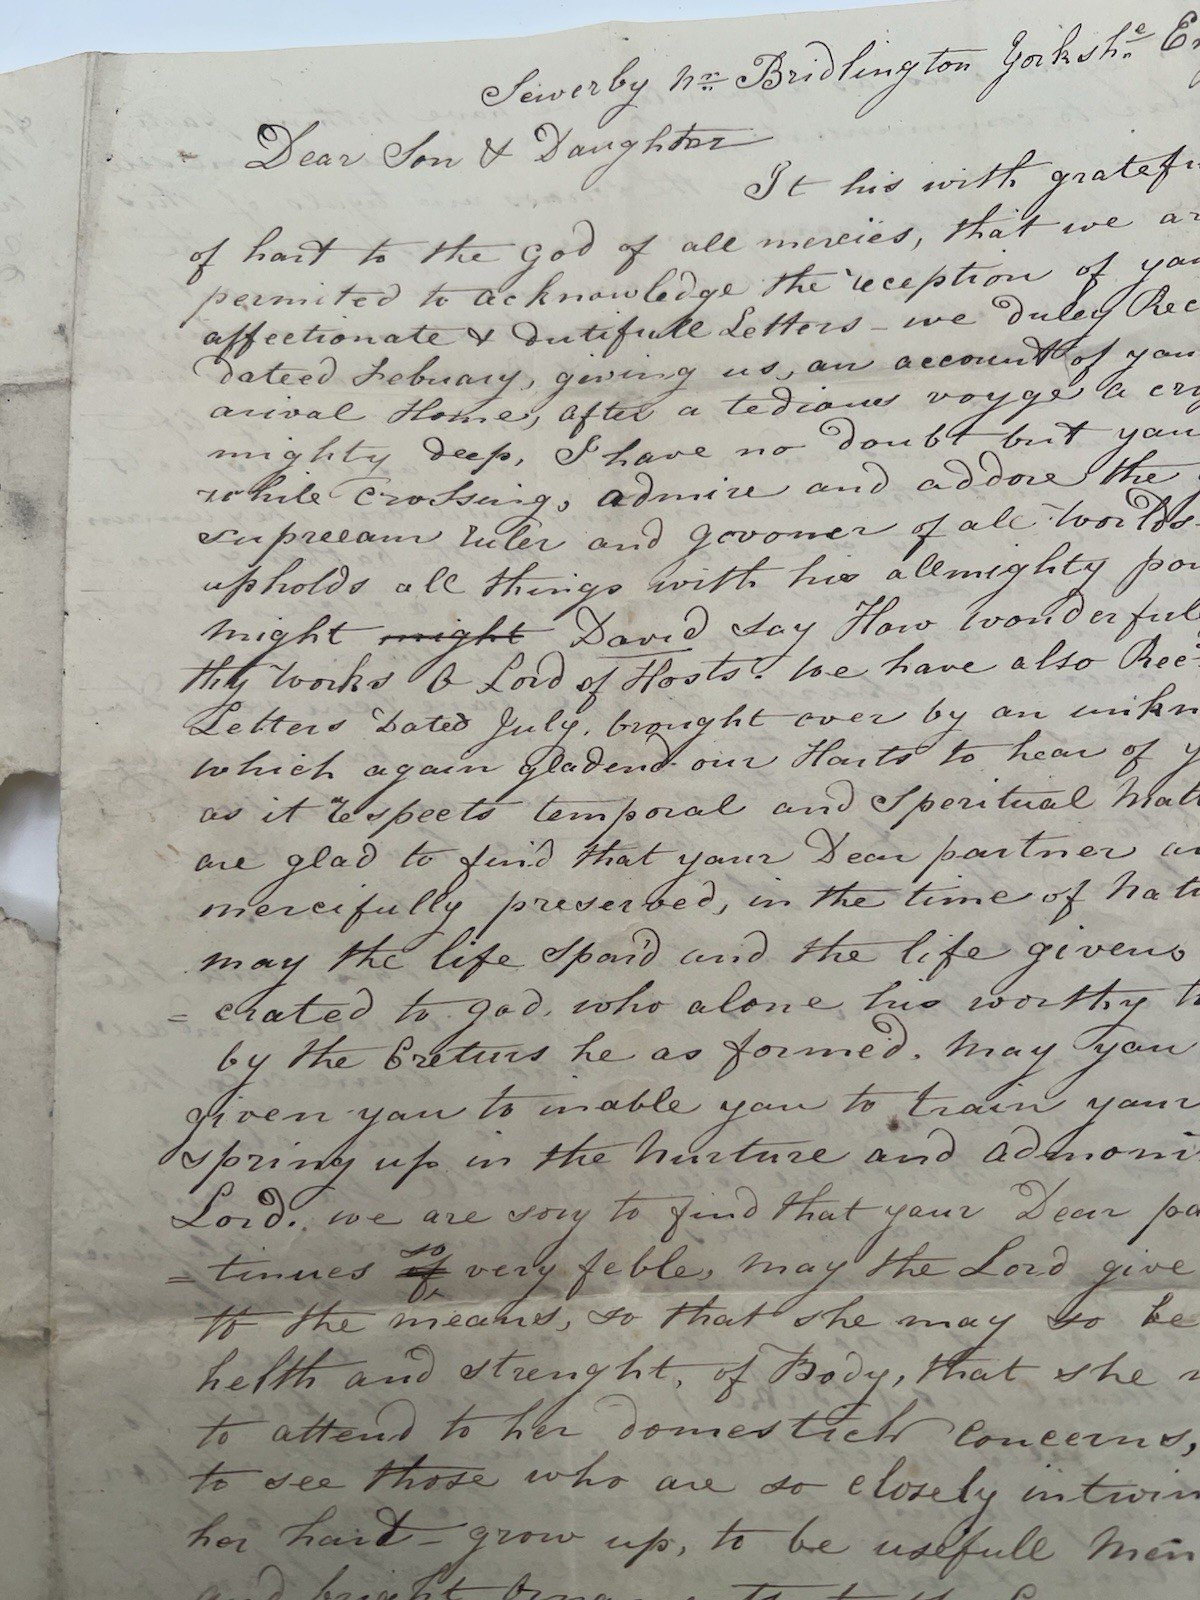 Sewerby Nr Bridlington Yorkshe
Dear Son & Daughter
It his with
of hart to the God of all mercies, that we
permited to acknowledge the reception of
affectionate & dutifull Letters – we duley
dateed Febuary, giving us, an account of
arival Home, after a tedious voyge a
mighty deep, I have no doubt but you
while crossing, admire and addore the
supreeam ruler and govoner of all worlds
upholds all things with his allmighty
might might David say How wonderful
thy works O Lord of Hosts. we have also
Letters Dated July, brought over by an
which again gladend our Harts to hear of
as it respects temporal and Speritual
are glad to find that your Dear partner
mercifully preserved, in the time of
may the life Spar'd and the life given
= crated to god. who alone his worthy
by the Creturs he as formed. May you
given you to inable you to train your
spring up in the Nurture and
Lord. we are sory to find that your Dear
= tinues so very feble, may the Lord give
to the means, so that she may so be
helth and strenght, of Body, that she
to attend to her domestick concerns,
to see those who are so closely
her hart – grow up, to be usefull Men
and bright